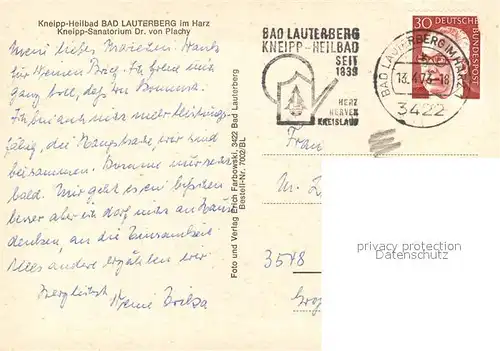 Kneipp-Heilbad BAD LAUTERBERG im Harz
Kneipp-Sanatorium Dr. von Plachy
Mein liebes Danke
für Deinen Brief. Ich freue mich
ganz toll, daß Du kommst.
Ich bin auch nicht mehr
fähig, die Hauptsache, wir sind
beisammen. Komme nur recht
bald. Mir geht es ein bißchen
besser aber ich darf nicht an Hause
denken, an die Einsamkeit
Alles andere erzählen wir
Herzlichst
Deine
Foto und Verlag Erich Farbowski, 3422 Bad Lauterberg
Bestell-Nr. 7002/BL
BAD LAUTERBERG
KNEIPP-HEILBAD
SEIT
1839
HERZ
NERVEN
KREISLAUF
BAD LAUTERBERG IM HARZ
13.4.73-18
3422
30 DEUTSCHE
BUNDESPOST
Frau
M.
3548
privacy protection
Datenschutz